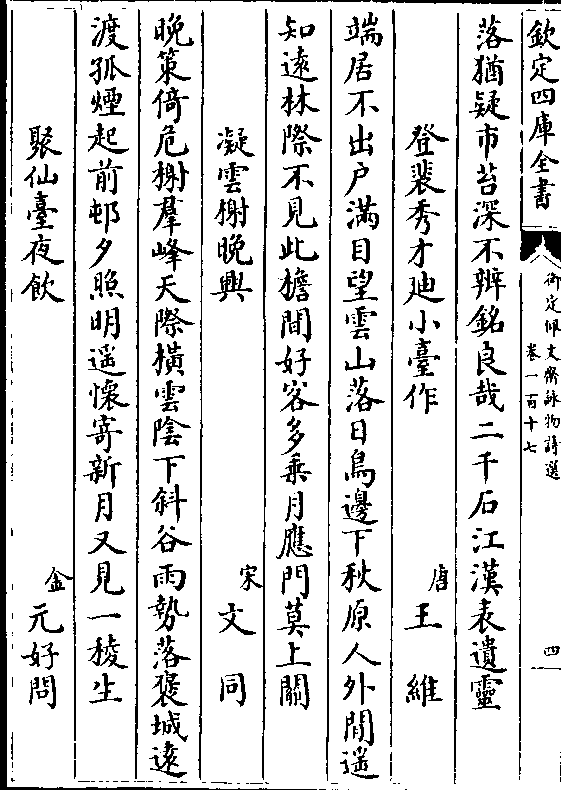 欽定四庫全書
御定佩文齋詠物詩選
卷一百十七
四
落猶疑市苔深不辨銘良哉二千石江漢表遺靈
登裴秀才廸小臺作
唐
王維
端居不出户滿目望雲山落日鳥邊下秋原人外閒遥
知遠林際不見此檐間好客多乗月應門莫上關
凝雲榭晚興
宋
文同
晚策倚危榭羣峰天際横雲陰下斜谷雨勢落褒城逺
渡孤煙起前邨夕照明遥懷寄新月又見一稜生
聚仙臺夜飲
金
元好問